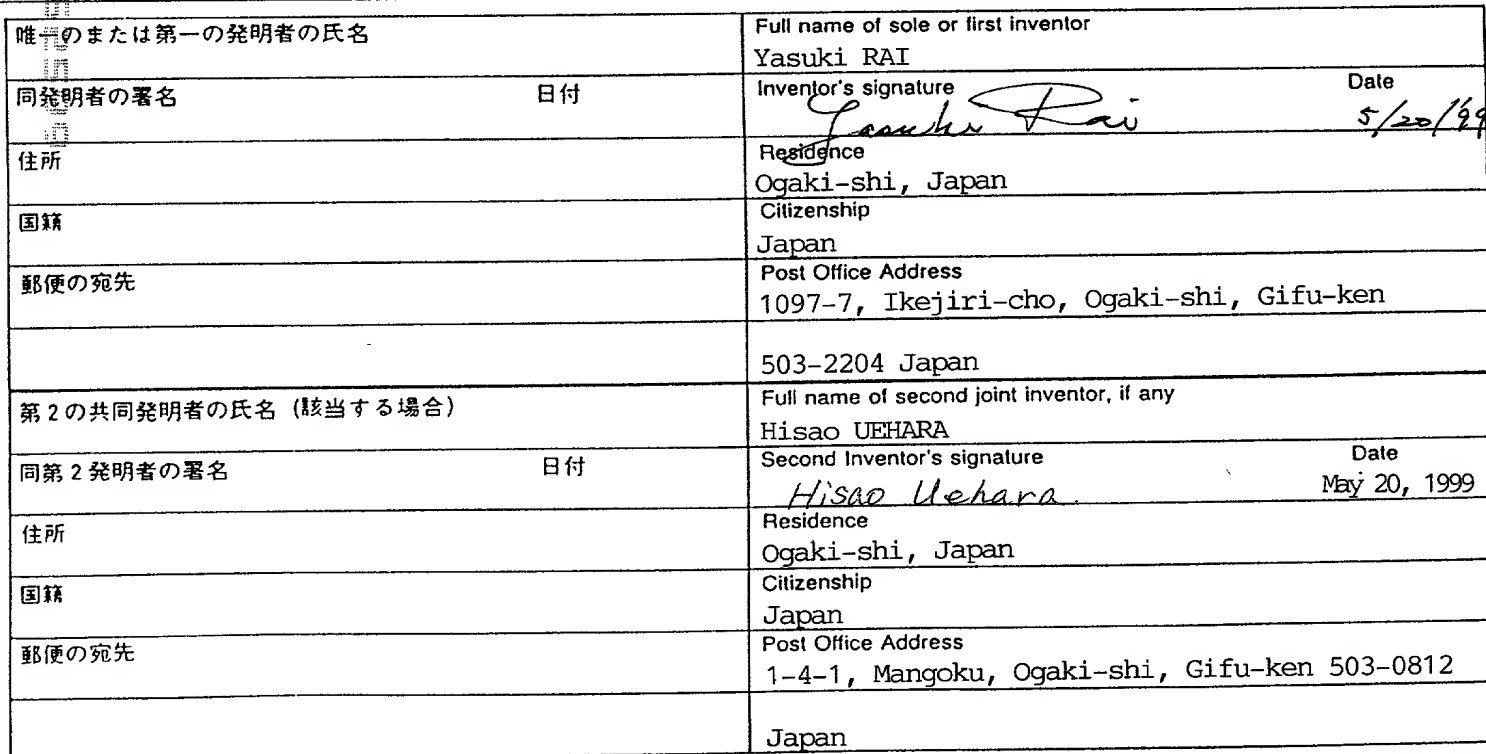 唯一のまたは第一の発明者の氏名
Full name of sole or first inventor
Yasuki RAI
同発明者の署名 日付
Inventor's signature Date
Yasuki Rai 5/20/'99
住所
Residence
Ogaki-shi, Japan
国籍
Citizenship
Japan
郵便の宛先
Post Office Address
1097-7, Ikejiri-cho, Ogaki-shi, Gifu-ken
503-2204 Japan
第2の共同発明者の氏名 (該当する場合)
Full name of second joint inventor, if any
Hisao UEHARA
同第2発明者の署名 日付
Second Inventor's signature Date
Hisao Uehara. May 20, 1999
住所
Residence
Ogaki-shi, Japan
国籍
Citizenship
Japan
郵便の宛先
Post Office Address
1-4-1, Mangoku, Ogaki-shi, Gifu-ken 503-0812
Japan